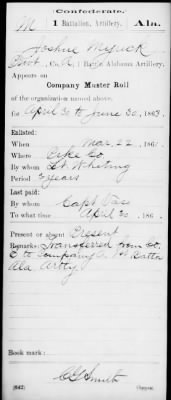 Confederate.
M 1 Battalion, Artillery. Ala.
Joshua Myrick
Pvt, Co. A, 1 Batt'n Alabama Artillery.
Appears on
Company Muster Roll
of the organization named above,
for April 30 to June 30, 1863.
Enlisted:
When Mar. 22, 186
Where Pike Co
By whom Lt. Whiting
Period 3 years
Last paid:
By whom Capt
To what time April 30, 186
Present or absent Present
Remarks: Transferred from Co.
C to Company A, 1st Battn
Ala Arty
Book mark:
(642) Copyist.